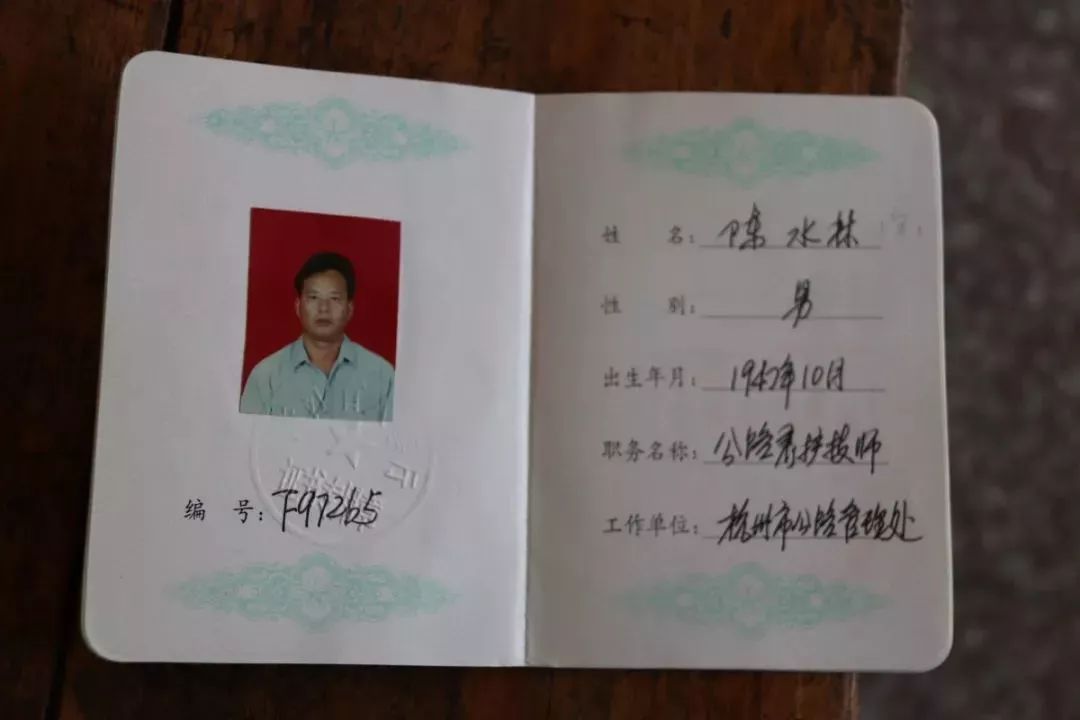 编 号:下97265
姓 名:陈水林
性 别:男
出生年月:1947年10月
职务名称:公路养护技师
工作单位:杭州市公路管理处